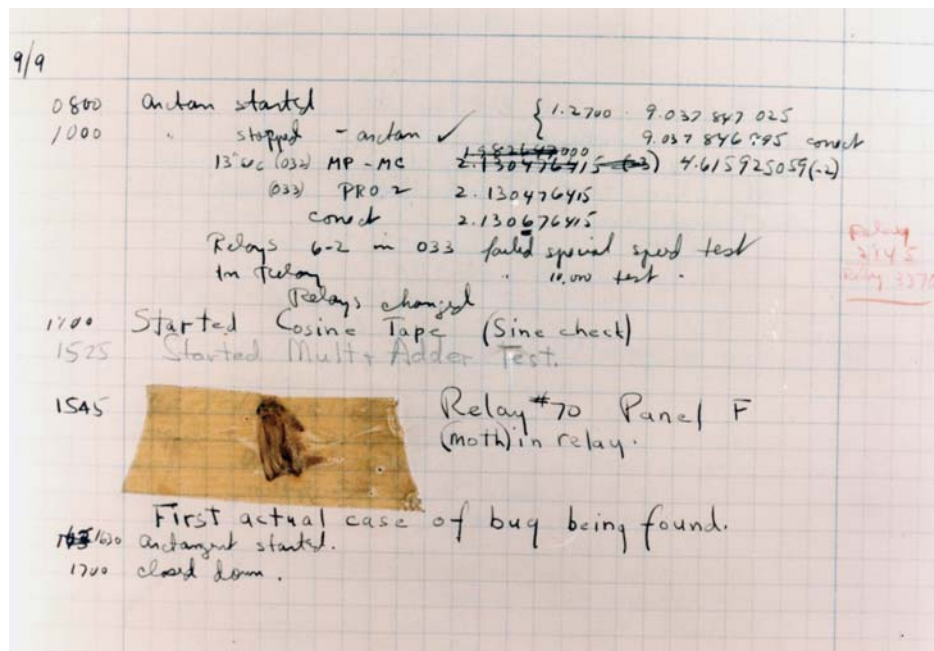 9/9
0800 Antan started
1000 " stopped - antan ✓ { 1.2700 9.037 847 025
9.037 846 795 correct
13"uc (032) MP - MC 2.130476415 (-3) 4.615925059(-2)
(033) PRO 2 2.130476415
correct 2.130676415
Relays 6-2 in 033 failed special speed test
In Relay " 10.000 test .
Relay
3145
Relay 3370
Relays changed
1700 Started Cosine Tape (Sine check)
1525 Started Mult + Adder Test.
1545 Relay #70 Panel F
(moth) in relay.
First actual case of bug being found.
1630 antangent started.
1700 closed down.